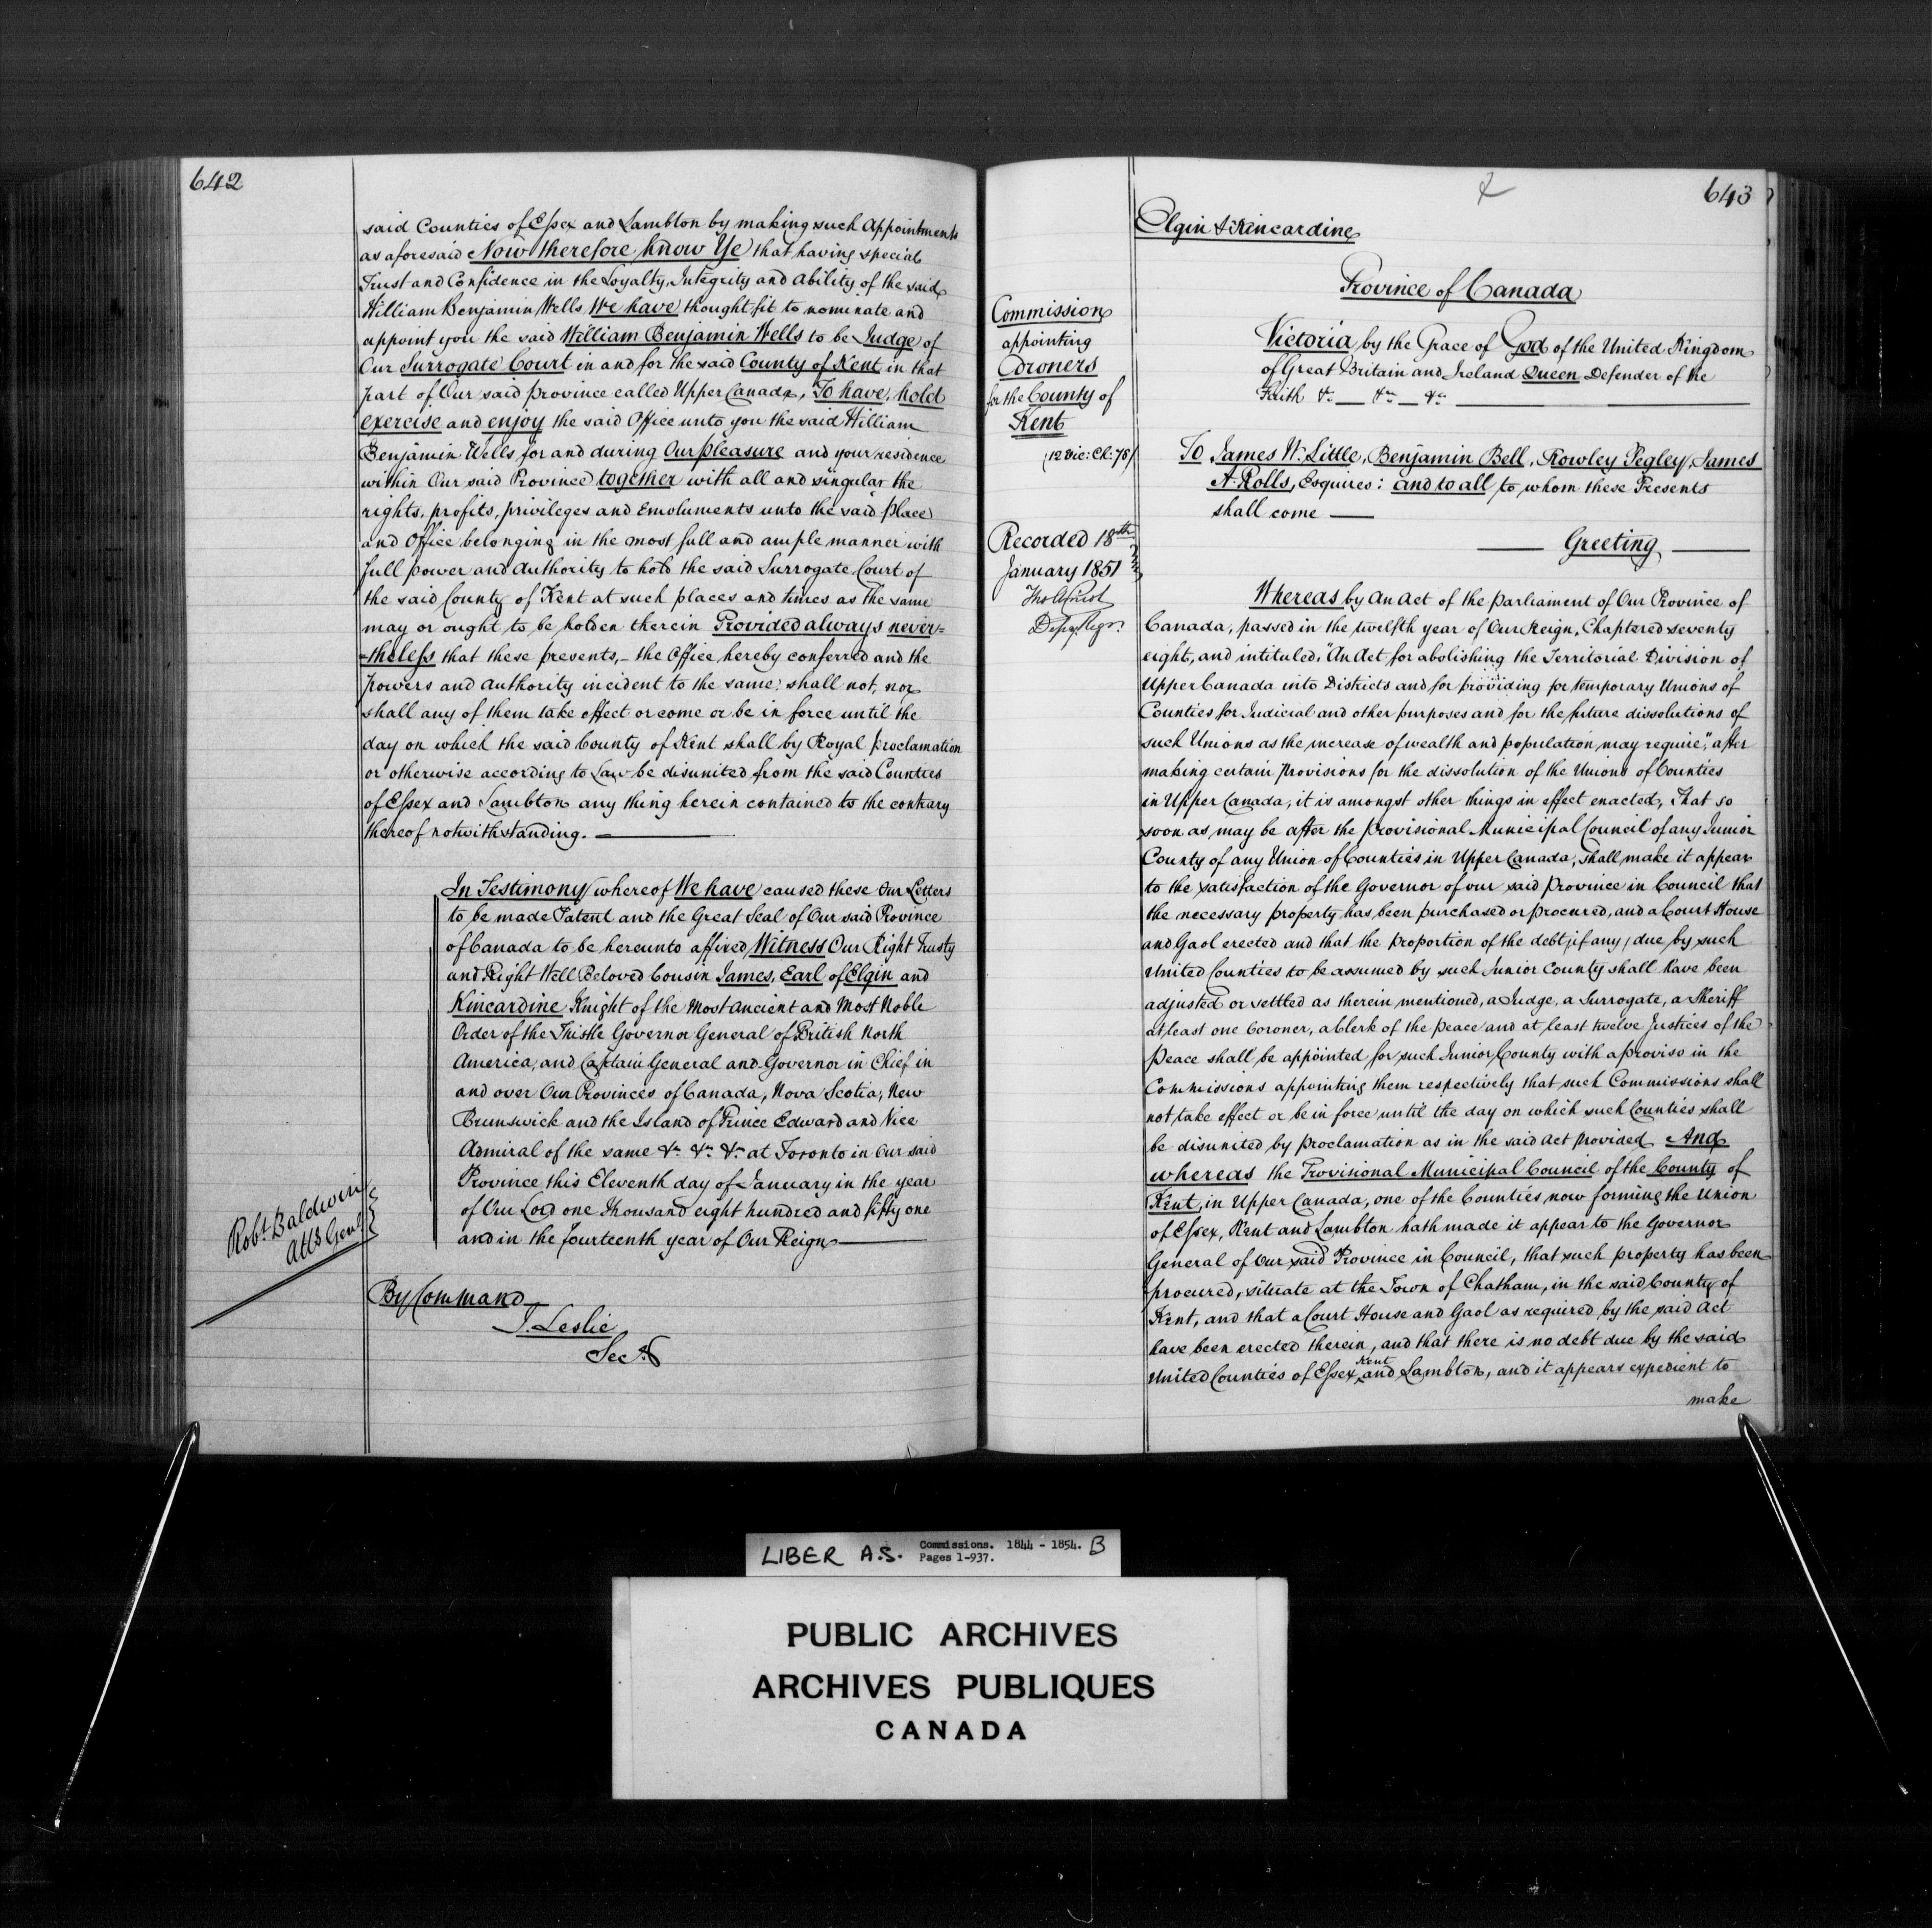 642
said Counties of Essex and Lambton by making such Appointments
as aforesaid Now therefore know Ye that having special
Trust and Confidence in the Loyalty, Integrity and ability of the said
William Benjamin Wells We have thought fit to nominate and
appoint you the said William Benjamin Wells to be Judge of
Our Surrogate Court in and for the said County of Kent in that
part of Our said province called Upper Canada, To have, hold
exercise and enjoy the said Office unto you the said William
Benjamin Wells for and during Our pleasure and your residence
within Our said Province together with all and singular the
rights, profits, privileges and Emoluments unto the said place
and Office belonging in the most full and ample manner with
full power and authority to hold the said Surrogate Court of
the said County of Kent at such places and times as the same
may or ought to be holden therein Provided always never=
=theless that these presents, – the Office hereby conferred and the
powers and authority incident to the same; shall not, nor
shall any of them take effect or come or be in force until the
day on which the said County of Kent shall by Royal proclamation
or otherwise according to Law be disunited from the said Counties
of Essex and Lambton any thing herein contained to the contrary
thereof notwithstanding. —
In Testimony whereof We have caused these Our Letters
to be made Patent and the Great Seal of Our said Province
of Canada to be hereunto affixed, Witness Our Right Trusty
and Right Well Beloved Cousin James, Earl of Elgin and
Kincardine Knight of the Most ancient and Most Noble
Order of the Thistle Governor General of British North
America, and Captain General and Governor in Chief in
and over Our Provinces of Canada, Nova Scotia, New
Brunswick and the Island of Prince Edward and Vice
Admiral of the same &c &c &c at Toronto in Our said
Province this Eleventh day of January in the year
of Our Lord one Thousand eight hundred and fifty one
and in the fourteenth year of Our Reign —
Robt Baldwin
Atty Genl
By Command
J. Leslie
Secy
643
Elgin & Kincardine
Province of Canada
Commission
appointing
Coroners
for the County of
Kent
(12 Vic: Ch: 78)
Recorded 18th
January 1851
Depy Regr.
Victoria by the Grace of God of the United Kingdom
of Great Britain and Ireland Queen Defender of the
Faith &c — &c — &c —
To James W. Little, Benjamin Bell, Rowley Pegley, James
A. Rolls, Esquires: and to all to whom these Presents
shall come —
— Greeting —
Whereas by an Act of the Parliament of Our Province of
Canada, passed in the twelfth year of Our Reign, Chaptered seventy
eight, and intituled, "An Act for abolishing the Territorial Division of
Upper Canada into Districts and for providing for temporary Unions of
Counties for Judicial and other purposes and for the future dissolutions of
such Unions as the increase of wealth and population may require", after
making certain provisions for the dissolution of the Unions of Counties
in Upper Canada, it is amongst other things in effect enacted, That so
soon as may be after the provisional Municipal Council of any Junior
County of any Union of Counties in Upper Canada, shall make it appear
to the satisfaction of the Governor of our said Province in Council that
the necessary property has been purchased or procured, and a Court House
and Gaol erected and that the proportion of the debt, if any, due by such
United Counties to be assumed by such Junior County shall have been
adjusted or settled as therein mentioned, a Judge, a Surrogate, a Sheriff
at least one Coroner, a Clerk of the peace and at least twelve Justices of the
Peace shall be appointed for such Junior County with a proviso in the
Commissions appointing them respectively that such Commissions shall
not take effect or be in force until the day on which such Counties shall
be disunited by proclamation as in the said Act provided And
whereas the Provisional Municipal Council of the County of
Kent, in Upper Canada, one of the Counties now forming the Union
of Essex, Kent and Lambton hath made it appear to the Governor
General of Our said Province in Council, that such property has been
procured, situate at the Town of Chatham, in the said County of
Kent, and that a Court House and Gaol as required by the said Act
have been erected therein, and that there is no debt due by the said
United Counties of Essex Kent and Lambton, and it appears expedient to
make
LIBER A.S. Commissions. 1844 - 1854. B
Pages 1-937.
PUBLIC ARCHIVES
ARCHIVES PUBLIQUES
CANADA